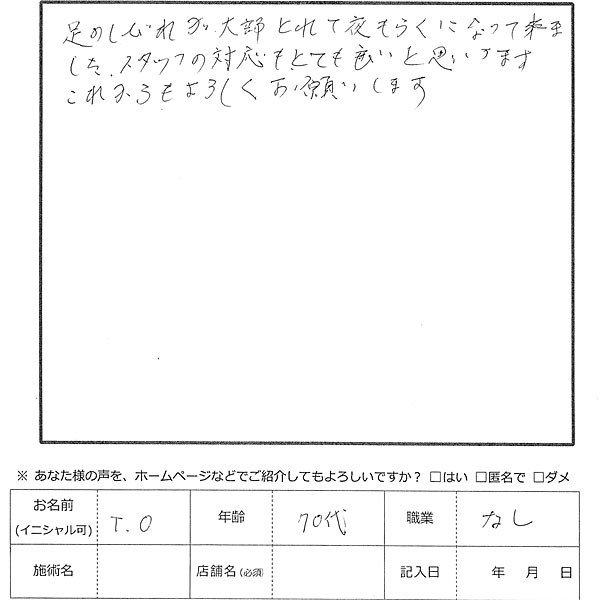 足のしびれが大部とれて夜もらくになって来ま
した、スタッフの対応もとても良いと思います
これからもよろしくお願いします
※ あなた様の声を、ホームページなどでご紹介してもよろしいですか？ □はい □匿名で □ダメ
お名前 (イニシャル可) T.O 年齢 70代 職業 なし
施術名 店舗名(必須) 記入日 年 月 日